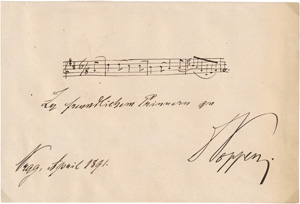 Zu freundlichem Erinnern an
Popper
Prag, April 1891.